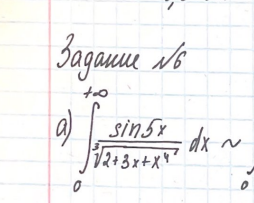 Задание №6
а) ∫₀^{+∞} sin5x / ∛(2+3x+x⁴) dx ~